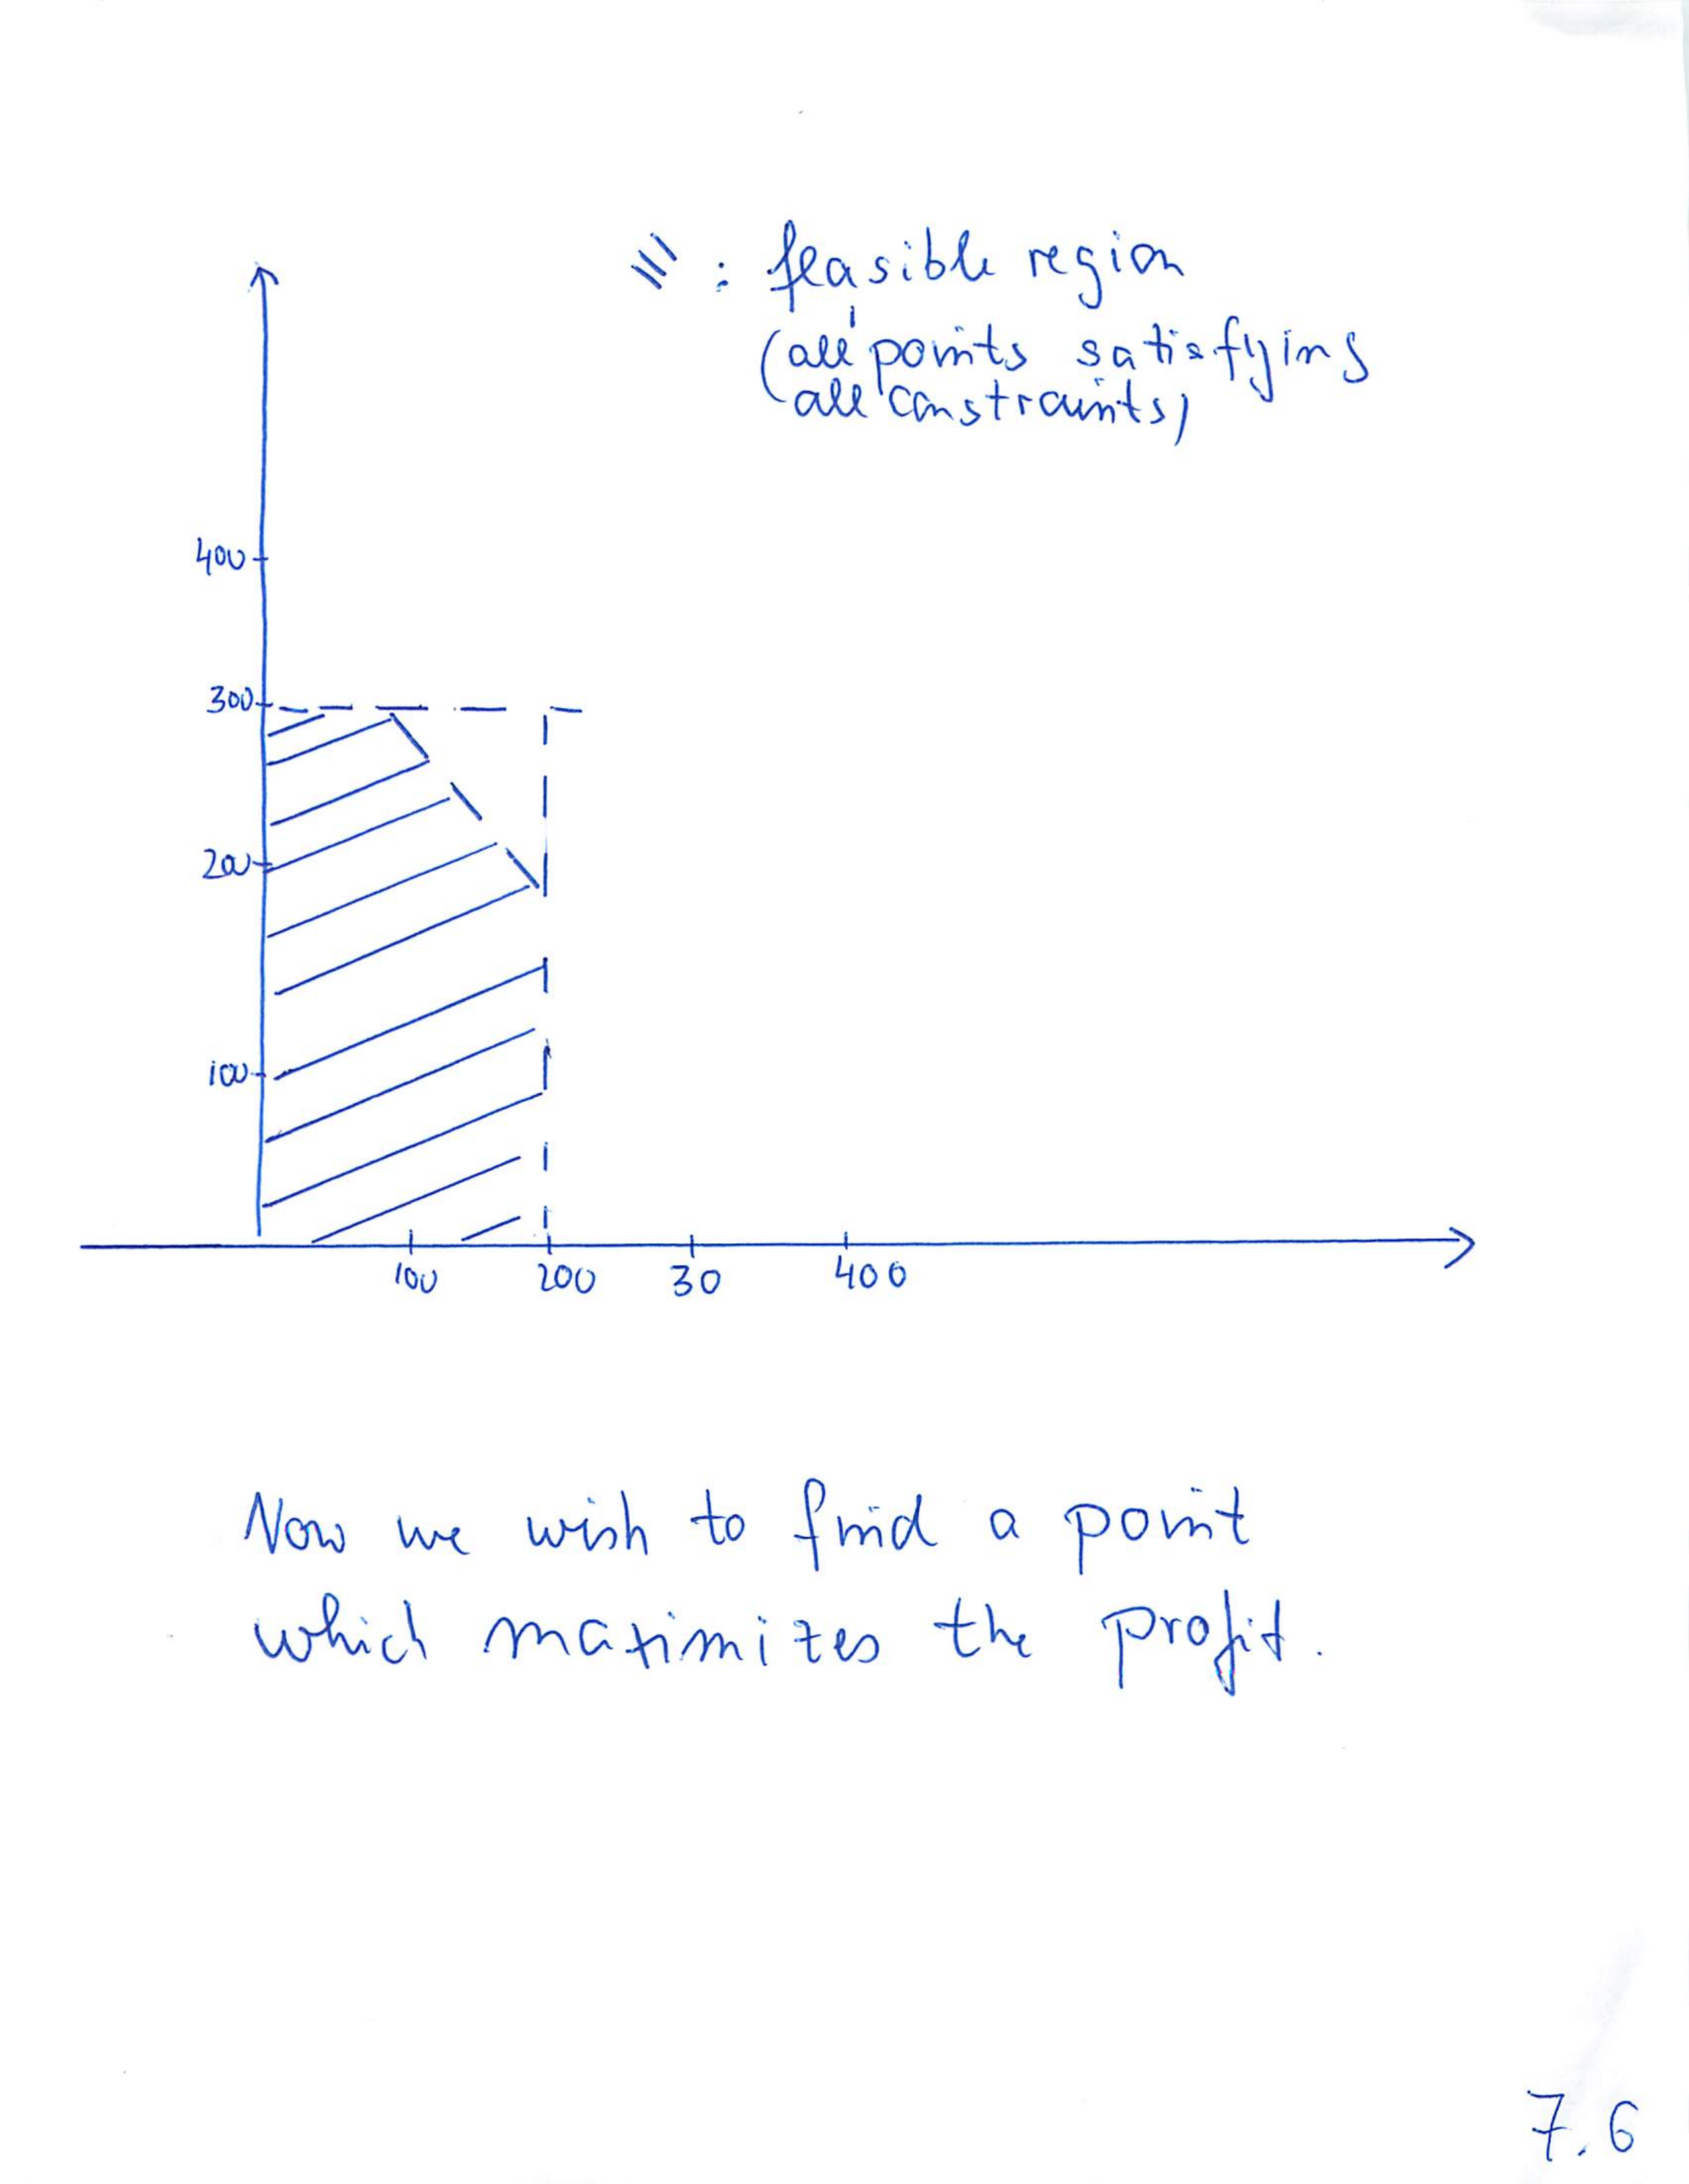 : feasible region
(all points satisfying
all constraints)
400
300
200
100
100 200 30 400
Now we wish to find a point
which maximizes the profit.
7.6